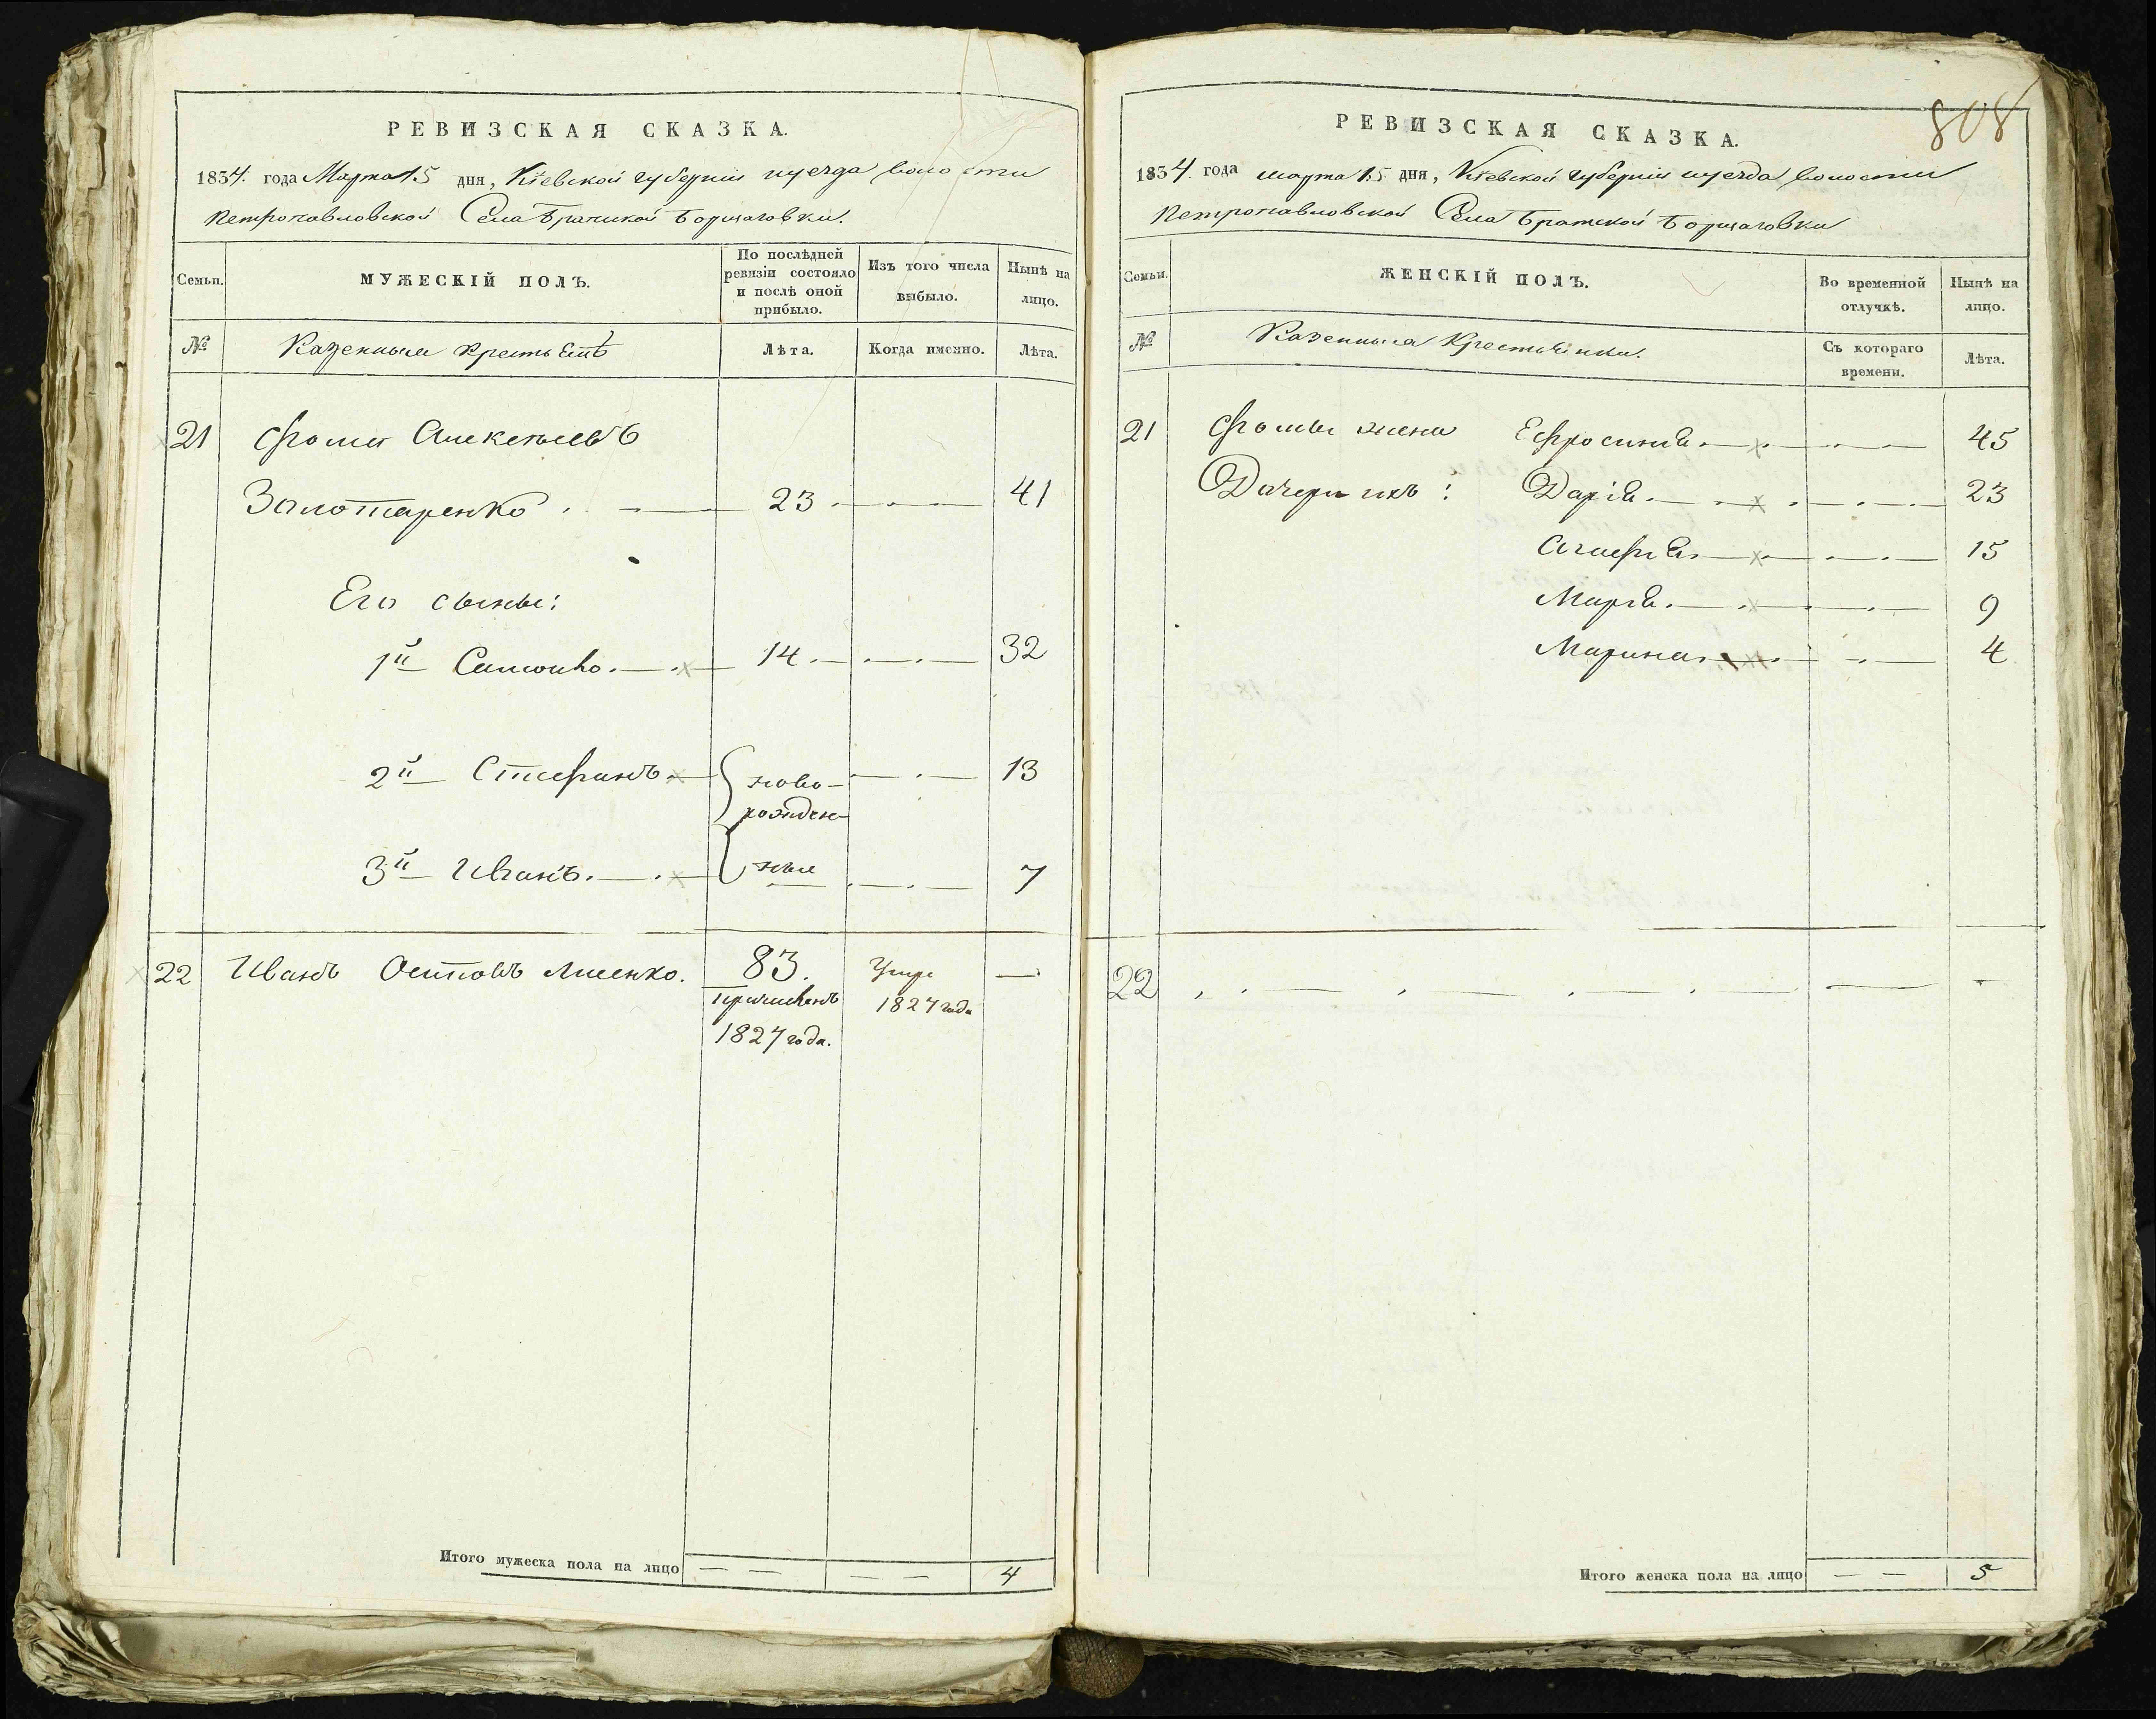 РЕВИЗСКАЯ СКАЗКА.
1834. года Марта 15 дня, Кіевской губерніи и уезда волости
Петропавловской Села Братской Борщаговки.
Семьи.
МУЖЕСКІЙ ПОЛЪ.
По послѣдней
ревизіи состояло
и послѣ оной
прибыло.
Изъ того числа
выбыло.
Нынѣ на
лицо.
№
Казенные Крестьянѣ
Лѣта.
Когда именно.
Лѣта.
21 Фома Алексѣевъ
Золотаренко 23 41
Его сыны:
1й Самойло 14 32
2й Стефанъ 13
ново-
рожден-
3й Иванъ ные 7
22 Иванъ Осиповъ Лисенко. 83. Умре —
Причисленъ 1827 года
1827 года.
Итого мужеска пола на лицо — — — — 4
808
РЕВИЗСКАЯ СКАЗКА.
1834. года марта 15 дня, Кіевской губерніи и уезда волости
Петропавловской Села Братской Борщаговки
Семьи.
ЖЕНСКІЙ ПОЛЪ.
Во временной
отлучкѣ.
Нынѣ на
лицо.
№
Казенныя Крестьянки.
Съ котораго
времени.
Лѣта.
21 Фомы жена Ефросинія 45
Дочери ихъ: Дарія 23
Агафія 15
Марія 9
Марина 4
22
Итого женска пола на лицо — — 5